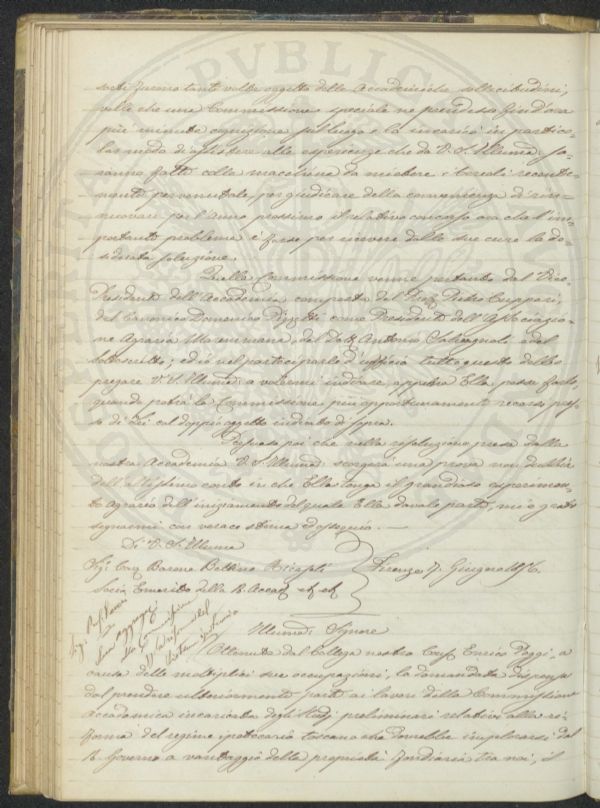 sorti furono tante volte oggetto delle Accademiche sollecitudini,
volle che una Commissione speciale ne prendesse fin d'ora
più minuta cognizione sul luogo e la incaricò in partico-
lar modo di assistere alle esperienze che da V. S. Illuma. sa-
ranno fatte colla macchina da mietere i Cereali recente-
mente pervenutale, per giudicare della convenienza di rin-
nuovare per l'Anno prossimo il relativo concorso ora che l'im-
portante problema è forse per ricevere dalle sue cure la de-
siderata soluzione.
Quella Commissione venne pertanto dal Vice-
Presidente dell'Accademia composta del Prof. Pietro Cuppari,
del Canonico Domenico Pizzetti come Presidente dell'Associazio-
ne Agraria Maremmana, del Dott. Antonio Salvagnoli e del
sottoscritto; ed io nel parteciparle d'ufficio tutto questo debbo
pregare V. S. Illuma. a volermi indicare, appena Ella possa farlo,
quando potrà la Commissione più opportunamente recarsi pres-
so di Lei col doppio oggetto indicato di sopra.
Persuaso poi che nella risoluzione presa dalla
nostra Accademia V. S. Illuma. scorgerà una prova non dubbia
dell'altissimo conto in che Ella tenga il grandioso esperimen-
to Agrario dell'iniziamento del quale Ella davale parte, mi è grato
segnarmi con verace stima ed ossequio. —
Di V. S. Illuma.
Sigr. Cav. Barone Bettino Ricasoli
Socio Emerito della R. Accad. &c. &c.
Firenze 17. Giugno 1856.
Illumo. Signore
Ottenuta dal Collega nostro Cav. Enrico Poggi, a
causa delle moltiplici sue occupazioni, la domandata dispensa
dal prendere ulteriormente parte ai lavori della Commissione
Accademica incaricata degli Studj preliminari relativi alla ri-
forma del regime ipotecario toscano che dovrebbe implorarsi dal
R. Governo a vantaggio della proprietà fondiaria tra noi, il